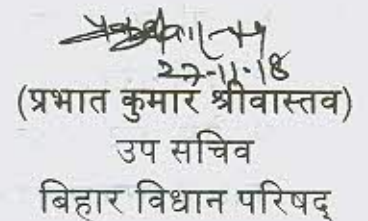 27-11-18
(प्रभात कुमार श्रीवास्तव)
उप सचिव
बिहार विधान परिषद्